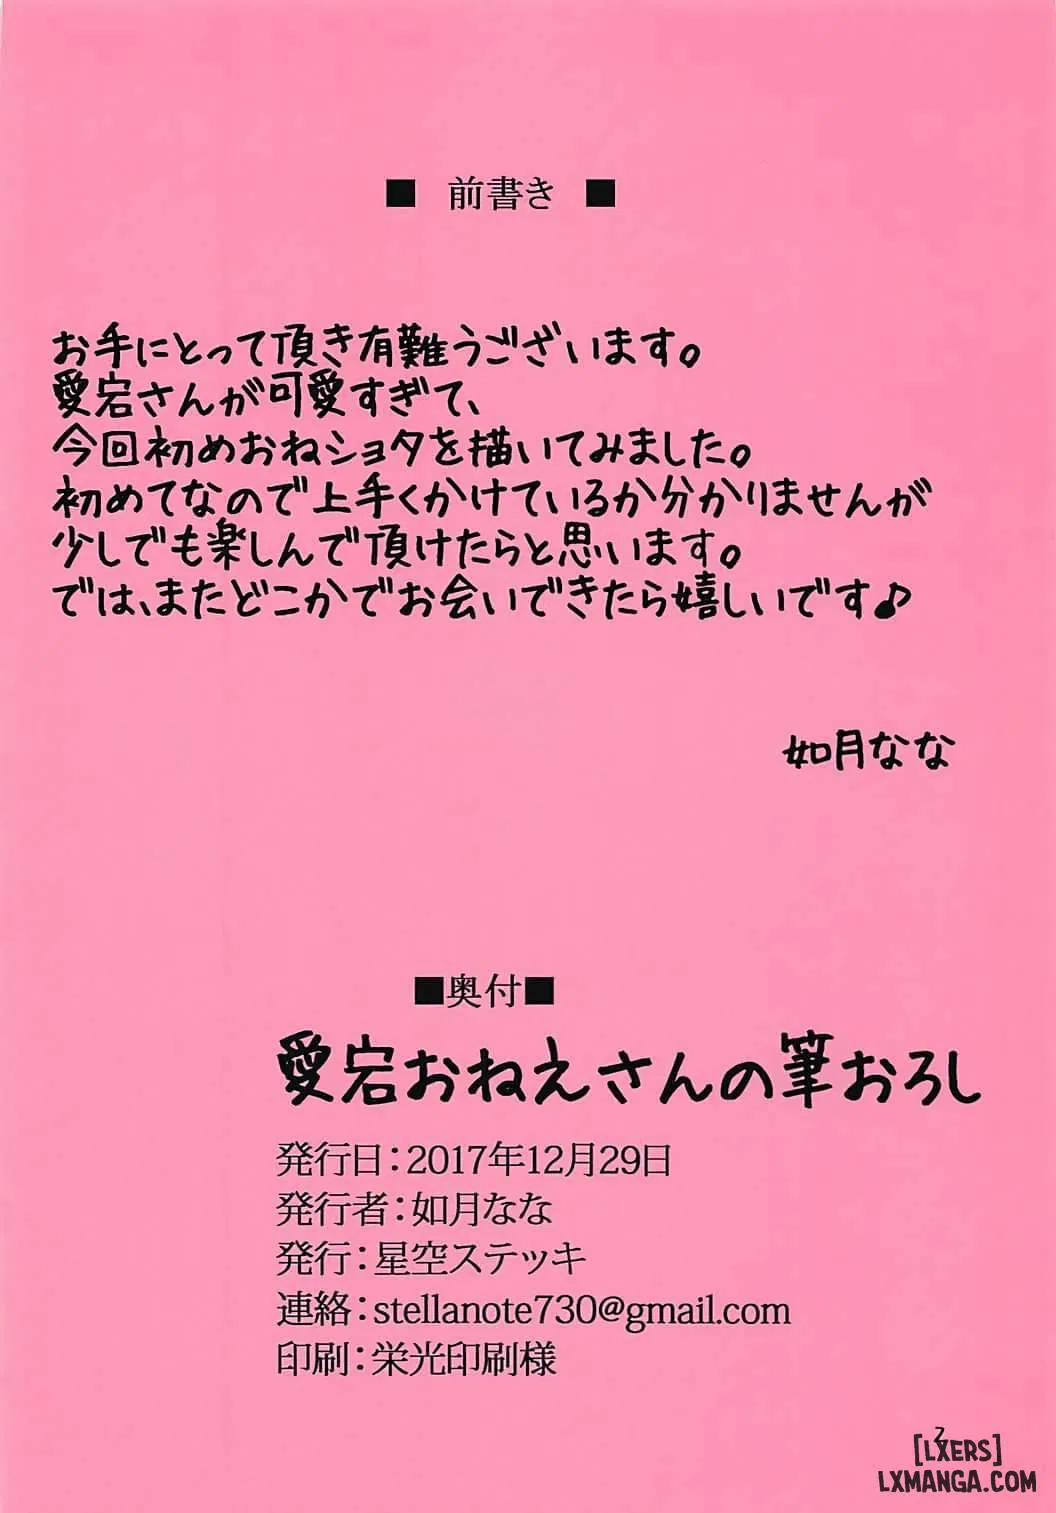 ■ 前書き ■
お手にとって頂き有難うございます。
愛宕さんが可愛すぎて、
今回初めおねショタを描いてみました。
初めてなので上手くかけているか分かりませんが
少しでも楽しんで頂けたらと思います。
では、またどこかでお会いできたら嬉しいです♪
如月なな
■奥付■
愛宕おねえさんの筆おろし
発行日：2017年12月29日
発行者：如月なな
発行：星空ステッキ
連絡：stellanote730@gmail.com
印刷：栄光印刷様
2
[LXERS]
LXMANGA.COM